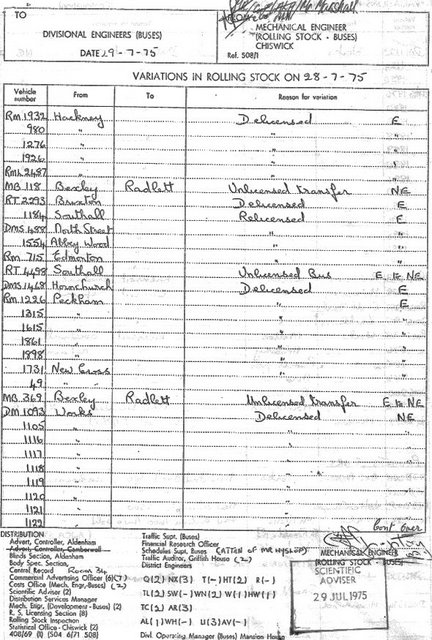 TO
DIVISIONAL ENGINEERS (BUSES)
DATE 29-7-75
MECHANICAL ENGINEER
(ROLLING STOCK - BUSES)
CHISWICK
Ref. 508/1
VARIATIONS IN ROLLING STOCK ON 28-7-75
Vehicle number From To Reason for variation
RM 1932 Hackney Delicensed E
980 " " "
1276 " " "
1926 " " "
RML 2487 " " "
MB 118 Bexley Radlett Unlicensed Transfer NE
RT 2293 Brixton Delicensed E
1184 Southall Relicensed E
DMS 488 North Street " "
1554 Abbey Wood " "
RM 715 Edmonton " "
RT 4498 Southall Unlicensed Bus E to NE
DMS 1468 Hornchurch Delicensed E
RM 1226 Peckham " E
1315 " " "
1615 " " "
1861 " " "
1898 " " "
1731 New Cross " "
49 " " "
MB 369 Bexley Radlett Unlicensed Transfer E to NE
DM 1093 Works Delicensed NE
1105 " " "
1116 " " "
1117 " " "
1118 " " "
1119 " " "
1120 " " "
1121 " " "
1122 " " "
Cont over
DISTRIBUTION
Advert. Controller, Aldenham
Advert. Controller, Camberwell
Blinds Section, Aldenham
Body Spec. Section,
Central Record Room 34
Commercial Advertising Officer (6)(7)
Costs Office (Mech. Engr.-Buses) (2)
Scientific Adviser (2)
Distribution Services Manager
Mech. Engr. (Development - Buses) (2)
R. S. Licensing Section (8)
Rolling Stock Inspection
Statistical Office - Chiswick (2)
408/69 (1) (504 6/71 508)
Traffic Supt. (Buses)
Financial Research Officer
Schedules Supt. Buses (ATTEN OF MR HYSLOP)
Traffic Auditor, Griffith House (2)
District Engineers
Q(2) NX(3) T(-) HT(2) R(-)
TL(2) SW(-) WN(2) W(1) HW(1)
TC(2) AR(3)
AL(1) WH(-) U(3) AV(-)
Divl. Operating Manager (Buses) Mansion House
MECHANICAL ENGINEER
(ROLLING STOCK - BUSES)
SCIENTIFIC
ADVISER
29 JUL 1975